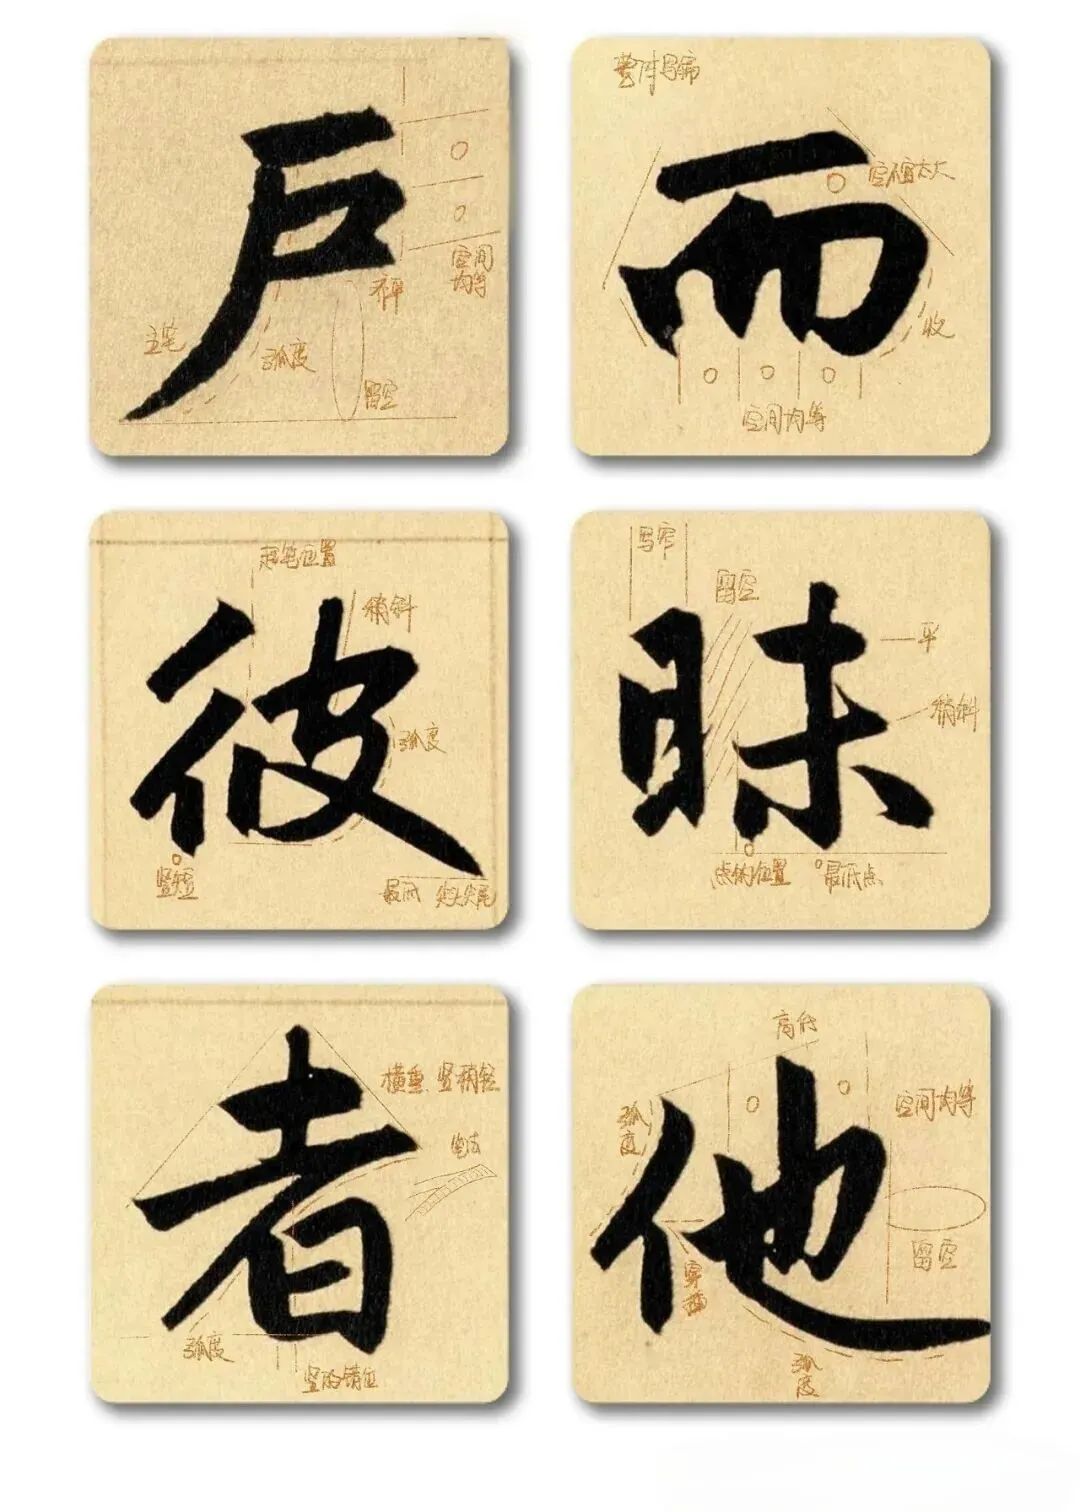 户
空间
均等
主笔
弧度
留空
而
整体写扁
空不宜太大
收
空间均等
彼
起笔位置
稍斜
弧度
竖短
最低
昧
写窄
留空
平
稍斜
点的位置
最低点
者
横重 竖稍轻
弧度
竖的错位
他
高低
弧度
空间均等
留空
穿插
弧度